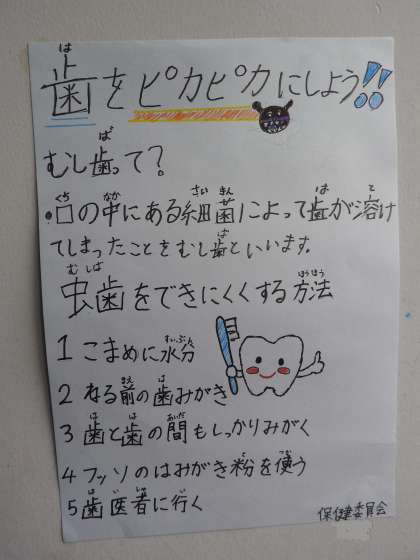 歯をピカピカにしよう!!
むし歯って?
・口の中にある細菌によって歯が溶け
てしまったことをむし歯といいます。
虫歯をできにくくする方法
1 こまめに水分
2 ねる前の歯みがき
3 歯と歯の間もしっかりみがく
4 フッソのはみがき粉を使う
5 歯医者に行く
保健委員会